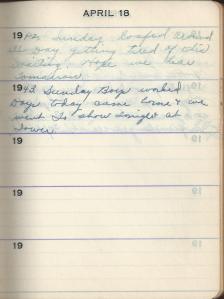 APRIL 18
1942 Sunday Loafed around
all Day getting tired of this
waiting. Hope we hear
tomorrow.
1943 Sunday Boys worked
Days today came home & we
went to show tonight at
Tower.
19
19
19